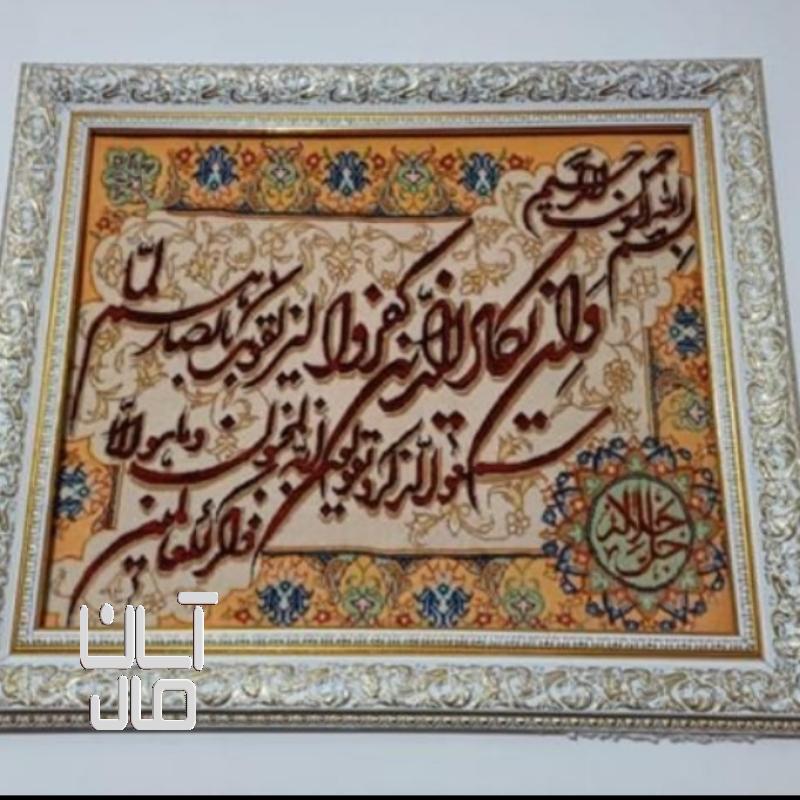 بسم الله الرحمن الرحیم
وَإِن یکاد الذین کفروا لیزلقونک بابصارهم لمّا
سمعوا الذکر و یقولون انه لمجنون و ما هو الّا
ذکر للعالمین
جل جلاله
آسان
مال